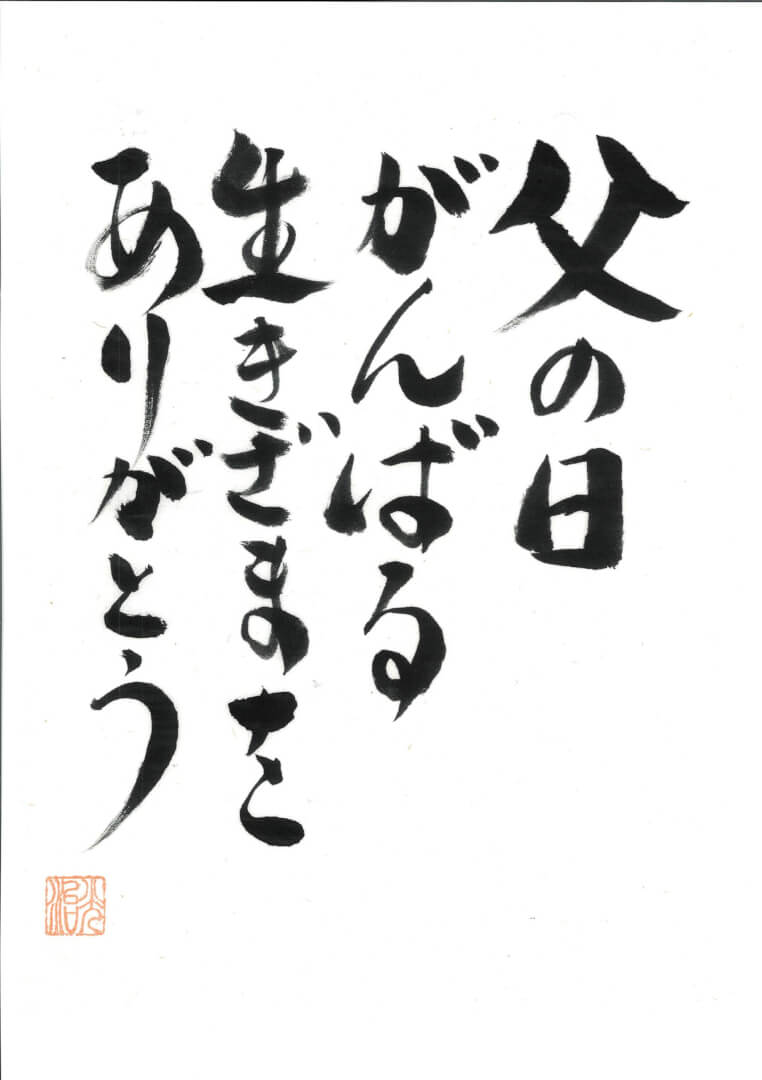 父の日
がんばる
生きざまを
ありがとう